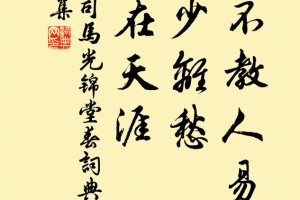 不教人易
少離愁
在天涯
司馬光锦堂春詞典
集